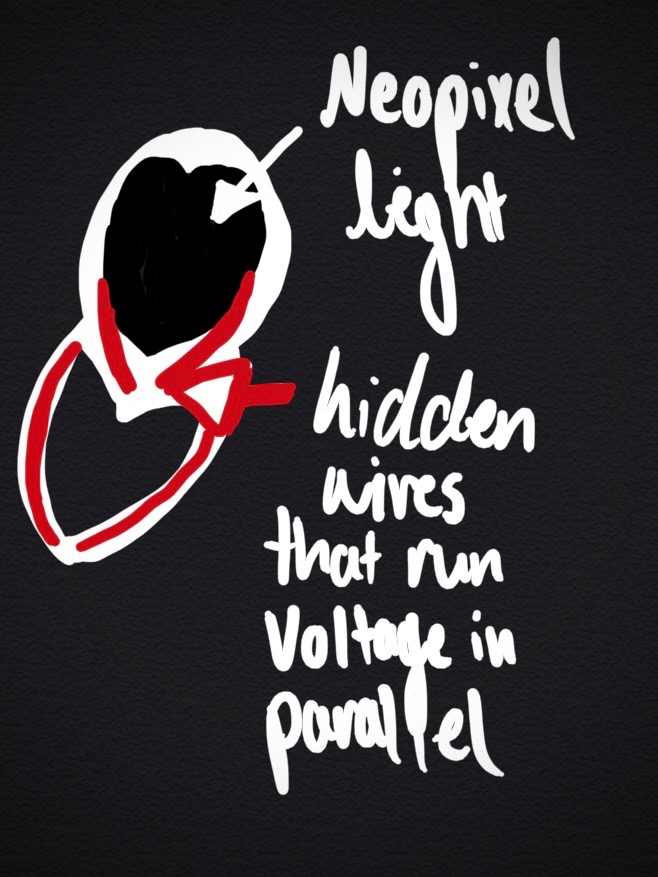 Neopixel
light
hidden
wires
that run
Voltage in
parallel